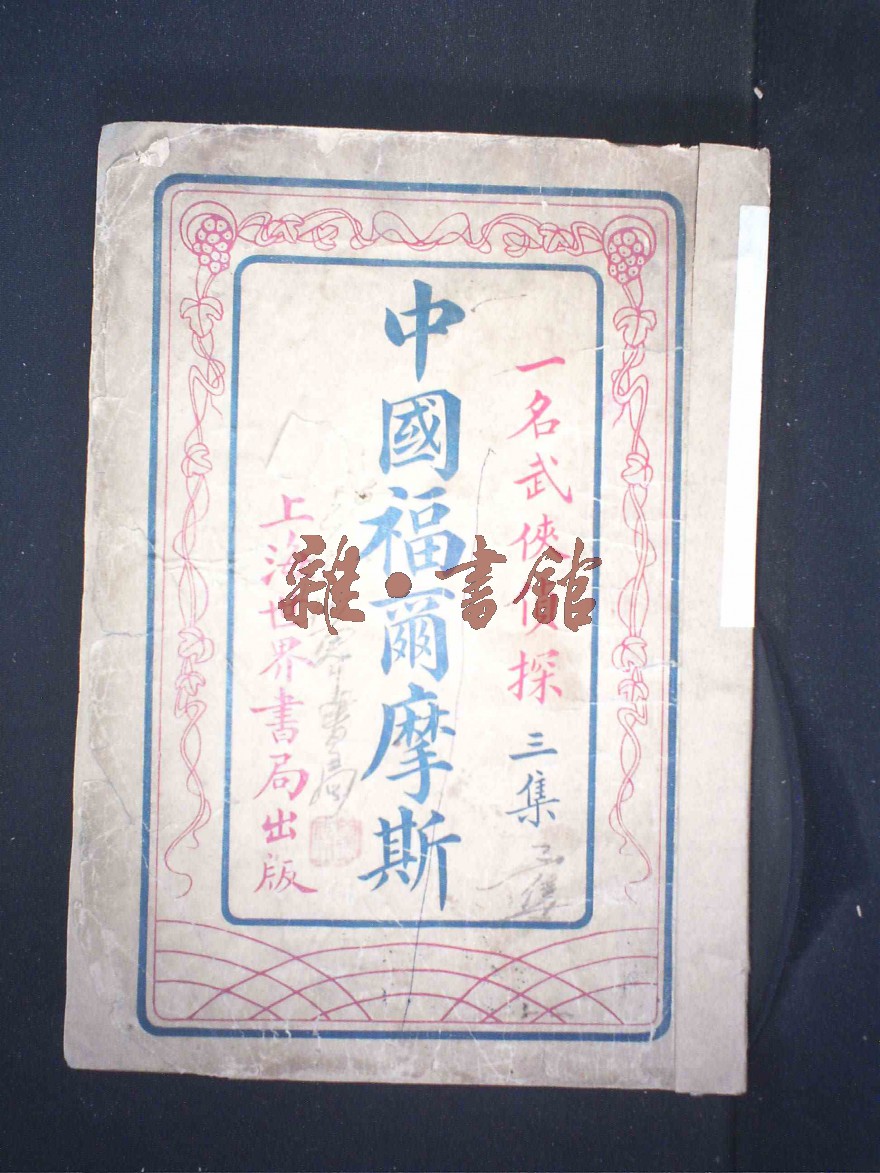 一名武俠偵探 三集
三集
中國福爾摩斯
書局
上海世界書局出版
雜·書館